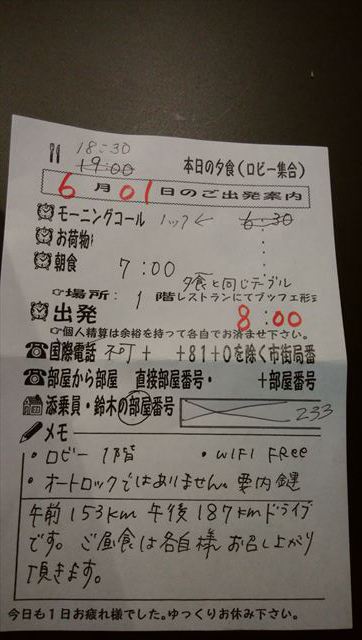 18:30
19:00 本日の夕食(ロビー集合)
6月01日のご出発案内
モーニングコール ノック 6:30
お荷物
朝食 7:00 夕食と同じテーブル
☞場所: 1 階レストランにてブッフェ形式
出発 8:00
☞個人精算は余裕を持って各自でお済ませ下さい。
国際電話 不可+ +81+0を除く市街局番
部屋から部屋 直接部屋番号・ +部屋番号
添乗員・鈴木の部屋番号 233
メモ
・ロビー 1階 ・WIFI FREE
・オートロックではありません。要内鍵
午前153km 午後187kmドライブ
です。ご昼食は各自様お召し上がり
頂きます。
今日も1日お疲れ様でした。ゆっくりお休み下さい。